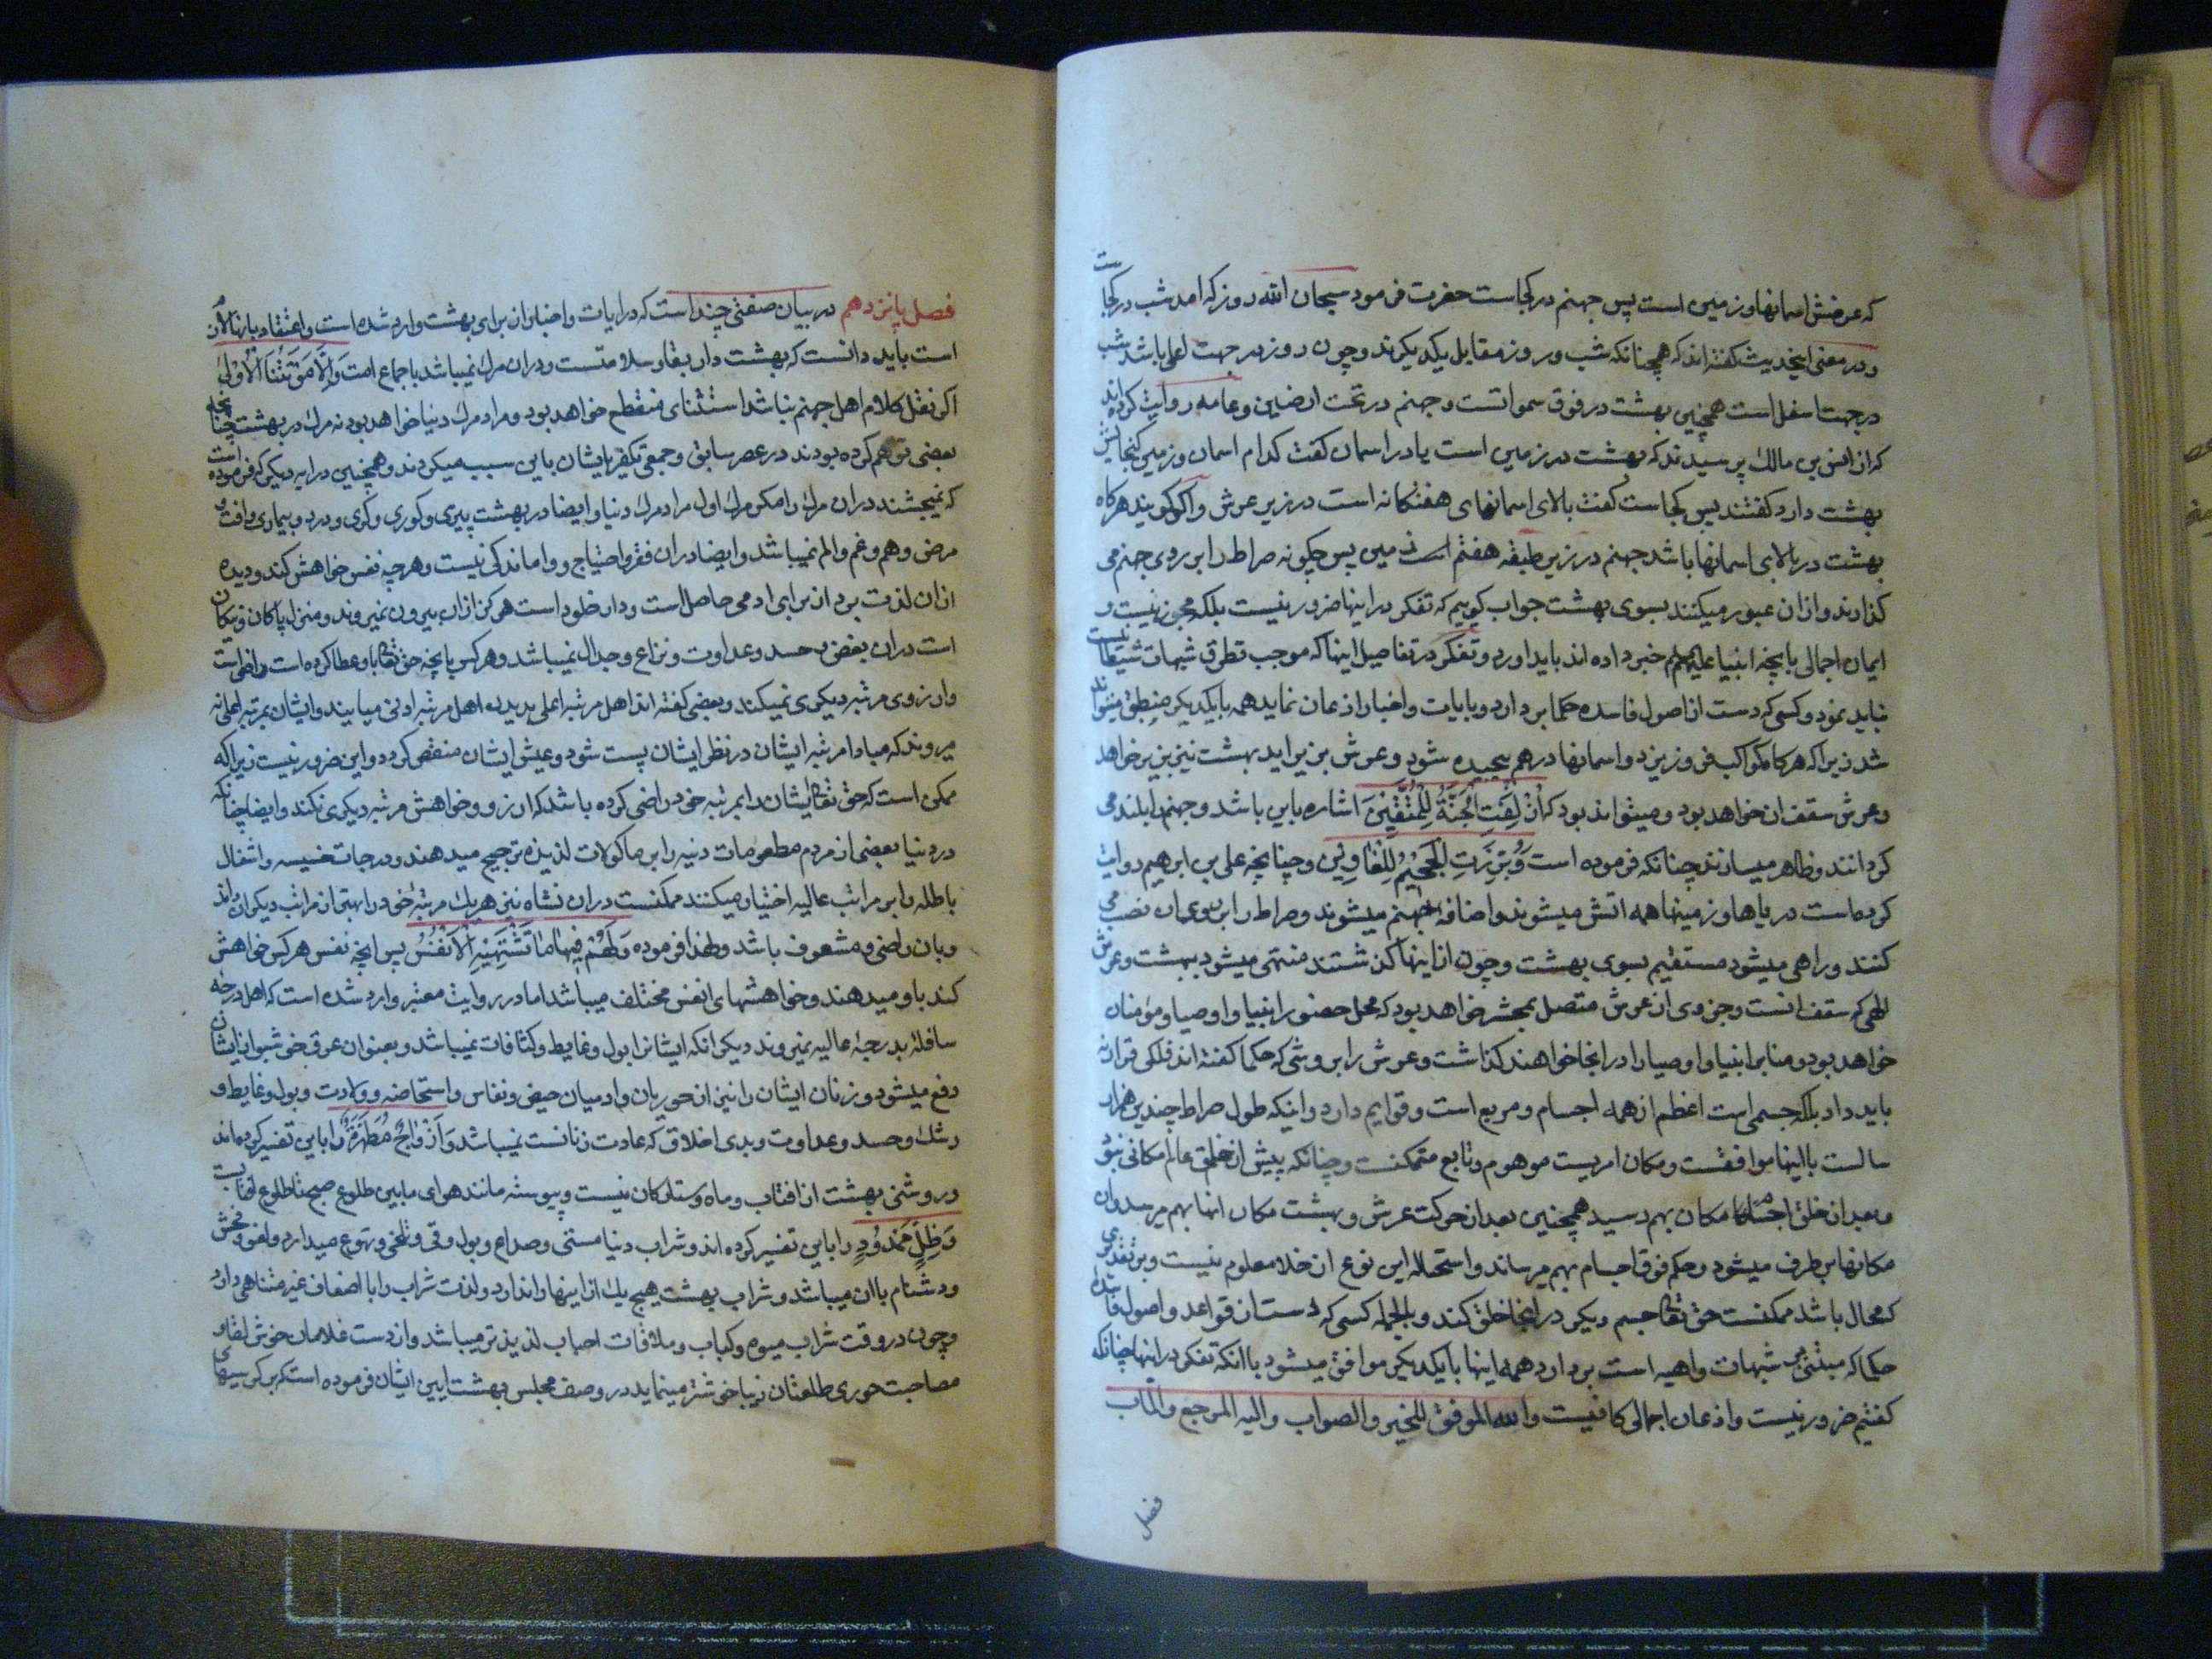 که عرضش اسمانها و زمین است پس جهنم در کجاست حضرت فرمود سبحان الله روز که امد شب در کجاست
و در معنی اینحدیث گفته اند که همچنانکه شب و روز مقابل یکدیکرند و چون روز در جهت اعلی باشد شب
در جهت اسفل است همچنین بهشت در فوق سمواتست و جهنم در تحت ارضین و عامه روایت کرده اند
که از انس بن مالک پرسیدند که بهشت در زمین است یا در اسمان کفت کدام اسمان و زمین کنجایش
بهشت دارد کفتند پس کجاست کفت بالای اسمانهای هفتکانه است در زیر عرش و اکر کویند هرکاه
بهشت در بالای اسمانها باشد جهنم در زیر طبقه هفتم زمین پس چکونه صراط را بر روی جهنم می
کذارند و از ان عبور میکنند بسوی بهشت جواب کوییم که تفکر در اینها ضرور نیست بلکه مجوز نیست و
ایمان اجمالی بانچه انبیا علیهم خبر داده اند باید اورد و تفکر در تفاصیل اینها که موجب تطرق شبهات شیطانیست
نباید نمود و کسی که دست از اصول فاسده حکما بردارد و بایات و اخبار اذعان نماید همه بایکدیکر منطبق میتواند
شد زیرا که هرکاه کواکب فرو ریزد و اسمانها درهم پیچیده شود و عرش بزیر اید بهشت نیز بزیر خواهد
و عرش سقف ان خواهد بود و میتواند بود که اُزْلِفَتِ الْجَنَّةُ لِلْمُتَّقِيْنَ اشاره باین باشد و جهنم را بلند می
کردانند و ظاهر میسازند چنانکه فرموده است وَبُرِّزَتِ الْجَحِيْمُ لِلْغَاوِيْنَ و چنانچه علی بن ابراهیم روایت
کرده است دریاها و زمینها همه اتش میشوند و اضافه جهنم میشوند و صراط را بر روی ان نصب می
کنند و راهی میشود مستقیم بسوی بهشت و چون از اینها کذشتند منتهی میشود ببهشت و عرش
الهی که سقف انست و جزوی از عرش متصل بمحشر خواهد بود که محل حضور انبیا و اوصیا و مومنان
خواهد بود و منابر انبیا و اوصیا را در انجا خواهند کذاشت و عرش را بر وشی که حکما کفته اند فلکی قرار نه
باید داد بلکه جسمی است اعظم از همه اجسام و مربع است و قوایم دارد و اینکه طول صراط چندین هزار
سالست با اینها موافقست و مکان امریست موهوم و تابع متمکنست و چنانکه پیش از خلق عالم مکانی نبود
و بعد از خلق اجسام مکان بهم رسید همچنین بعد از حرکت عرش و بهشت مکان انها بهم میرسد و ان
مکانها برطرف میشود و حکم فوق اجسام بهم میرساند و استحاله این نوع از خلا معلوم نیست و بر تقدیری
که محال باشد ممکنست حق تعالی جسم دیکر در انجا خلق کند و بالجمله کسی که دست از قواعد و اصول فاسده
حکما که مبتنی بر شبهات واهیه است بردارد همه اینها بایکدیکر موافق میشود با انکه تفکر در اینها چنانکه
کفتیم ضرور نیست و اذعان اجمالی کافیست والله الموفق للخیر والصواب والیه المرجع والماب
فصل
فصل پانزدهم در بیان صفتی چند است که در ایات و اخبار از برای بهشت وارد شده است و اعتقاد بانها لازم
است باید دانست که بهشت دار بقا و سلامتست و در ان مرك نمیباشد باجماع امت وَإِلَّا مَوْتَتَنَا الْأُوْلَى
اکر نقل کلام اهل جهنم نباشد استثنای منقطع خواهد بود و مراد مرك دنیا خواهد بود نه مرك در بهشت چنانچه
بعضی توهم کرده بودند در عصر سابق و جمعی تکفیر ایشان باین سبب میکردند و همچنین در ایه دیکر که فرموده است
که نمیچشند در ان مرك را مکر مرك اول مراد مرك دنیا و ایضا در بهشت پیری و کوری و کری و درد و بیماری و افت و
مرض و هم و غم و الم نمیباشد و ایضا در ان فقر و احتیاج و واماندکی نیست و هر چه نفس خواهش کند و دیده
از ان لذت برد از برای ادمی حاصل است و دار خلود است هرکز از ان بیرون نمیروند و منزل پاکان و نیکان
است در ان بغض و حسد و عداوت و نزاع و جدال نمیباشد و هر کس بانچه حق تعالی باو عطا کرده است راضی است
و ارزوی مرتبه دیکری نمیکند و بعضی کفته اند اهل مرتبه اعلی بدیدن اهل مرتبه ادنی میایند و ایشان بمرتبه اعلی نه
میروند که مبادا مرتبه ایشان در نظر ایشان پست شود و عیش ایشان منغص کردد و این ضرور نیست زیرا که
ممکن است که حق تعالی ایشان را بمرتبه خود راضی کرده باشد که ارزو و خواهش مرتبه دیکری نکنند و ایضا چنانکه
در دنیا بعضی از مردم مطعومات دنیه را بر ماکولات لذیذه ترجیح میدهند و درجات خسیسه و اشغال
باطله را بر مراتب عالیه اختیار میکنند ممکنست در ان نشاه نیز هریك مرتبه خود را بهتر از مراتب دیکران داند
و بان راضی و مشعوف باشد و لهذا فرموده وَلَهُمْ فِيهَا مَا تَشْتَهِيْهِ الْاَنْفُسُ پس انچه نفس هر کس خواهش
کند باو میدهند و خواهشهای انفس مختلف میباشد اما در روایت معتبر وارد شده است که اهل درجه
سافله بدرجه عالیه نمیروند دیکر انکه ایشانرا بول و غایط و کثافات نمیباشد و بعنوان عرق خوشبو از ایشان
دفع میشود و زنان ایشان را نیز از حوریان و ادمیان حیض و نفاس و استحاضه و ولادت و بول و غایط و
رشك و حسد و عداوت و بدی اخلاق که عادت زنانست نمیباشد وَاَزْوَاجٌ مُطَهَّرَةٌ را باین تفسیر کرده اند
و روشنی بهشت از افتاب و ماه و ستارکان نیست و پیوسته مانند هوای مابین طلوع صبح تا طلوع افتابست
وَظِلٍّ مَمْدُودٍ را باین تفسیر کرده اند و شراب دنیا مستی و صداع و بول و قی و تلخی و تهوع میدارد و لغو و فحش
و دشنام با ان میباشد و شراب بهشت هیچ یك از اینها را ندارد و لذت شراب را با اضعاف غیر متناهی دارد
و چون در وقت شراب میوه و کباب و ملاقات احباب لذیذتر میباشد و از دست غلامان خوش لقا و
مصاحبت حوری طلعتان زیبا خوشتر مینماید در وصف مجلس بهشت ایین ایشان فرموده است که بر کرسیهای